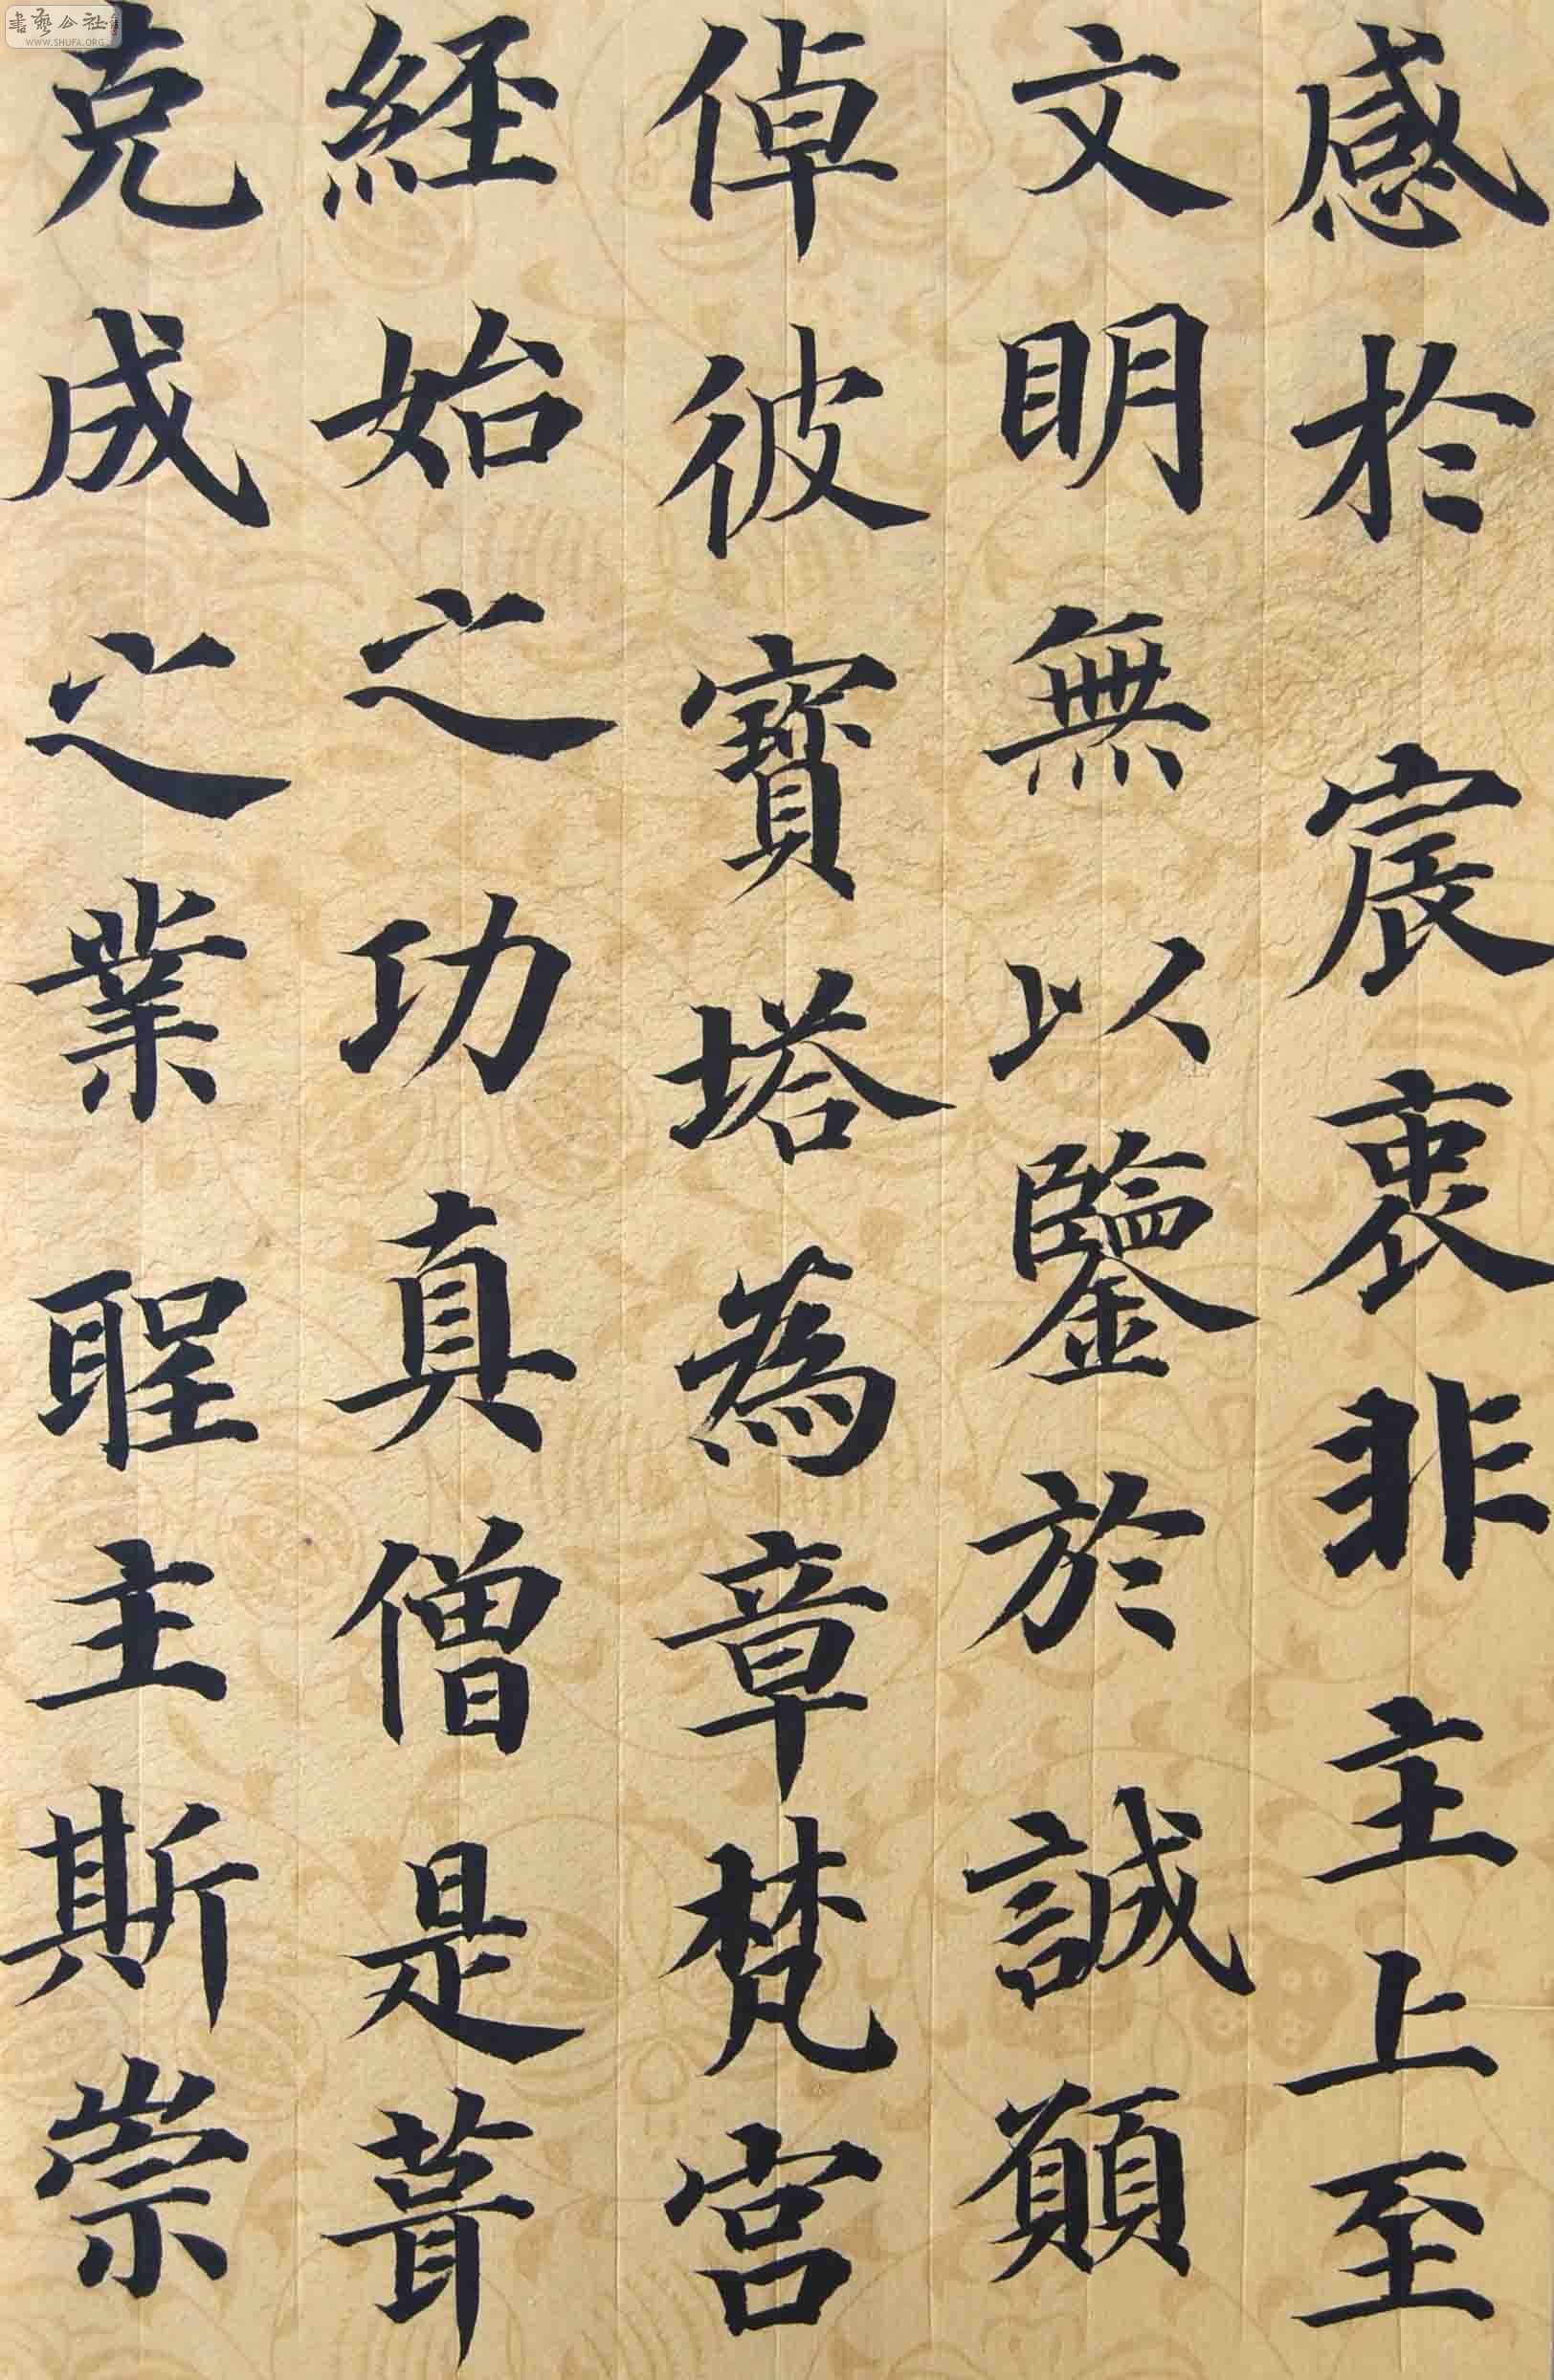 感於宸衷非主上至
文明無以鑒於誠願
倬彼寶塔為章梵宮
經始之功真僧是葺
克成之業聖主斯崇
書藝公社
WWW.SHUFA.ORG